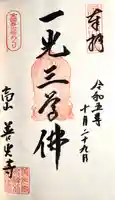 奉拝
令和五年
十月二十九日
一光三尊佛
高山
善光寺